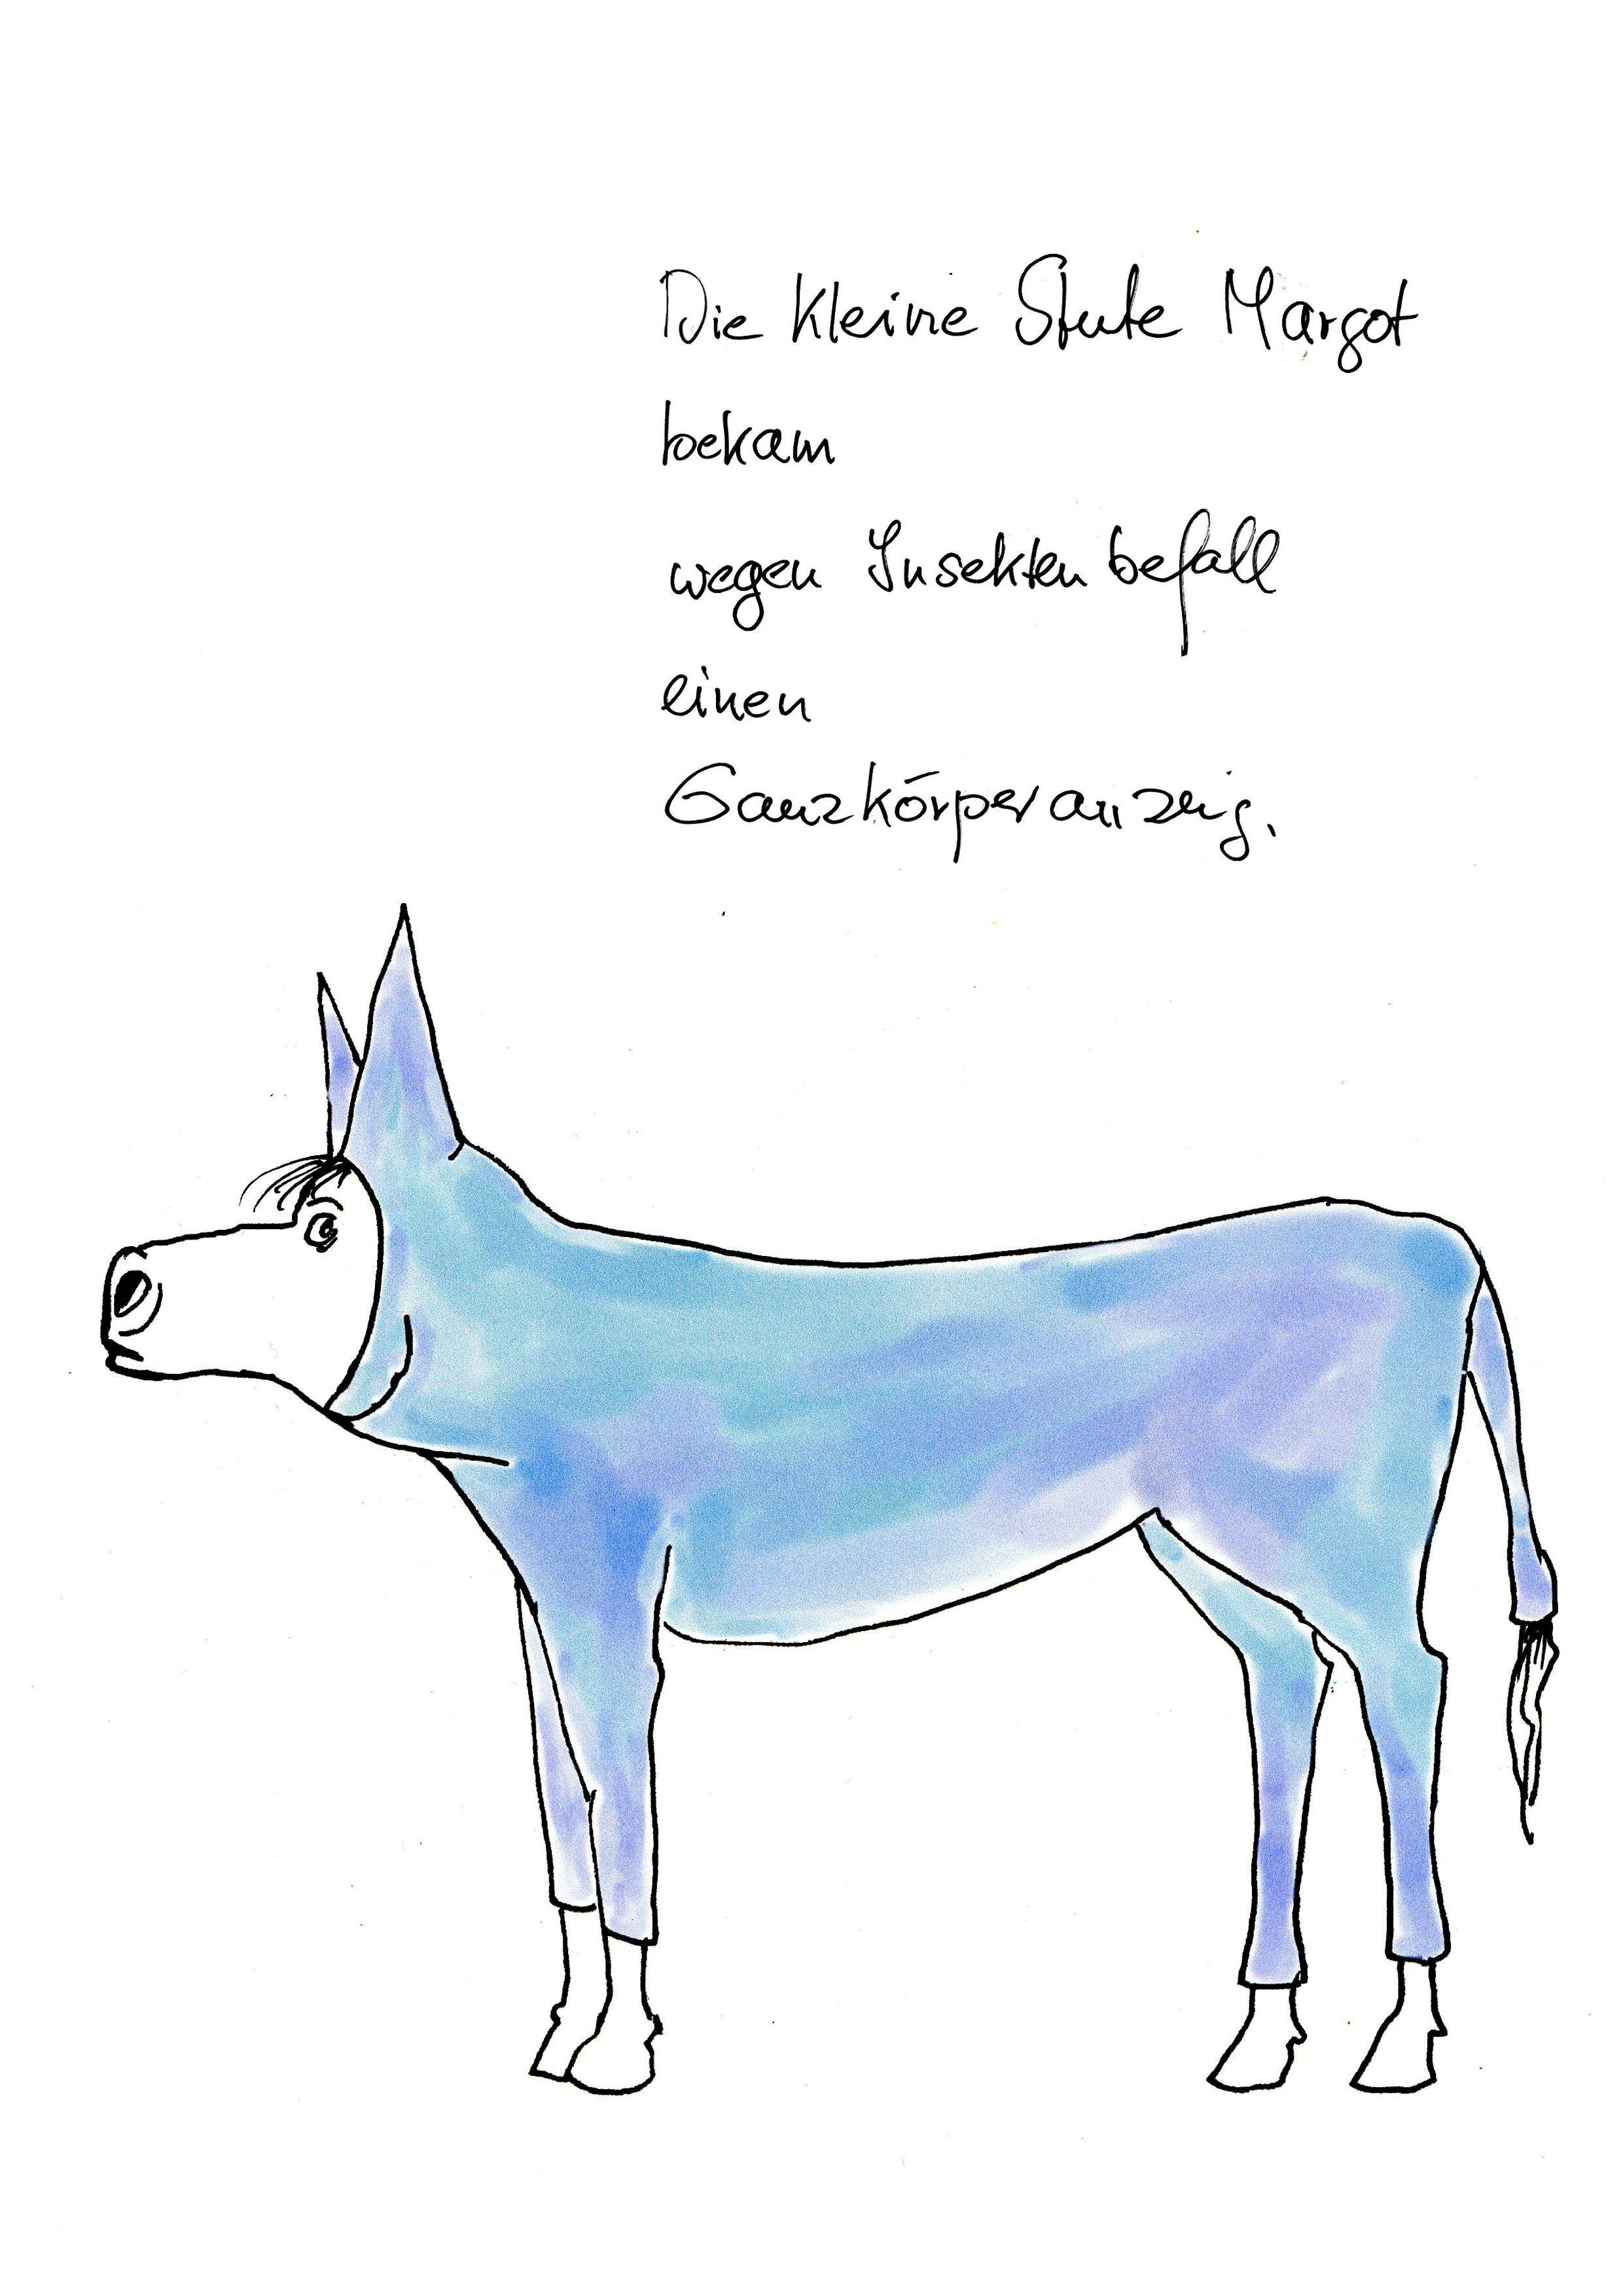 Die kleine Stute Margot
bekam
wegen Insektenbefall
einen
Ganzkörperanzug.